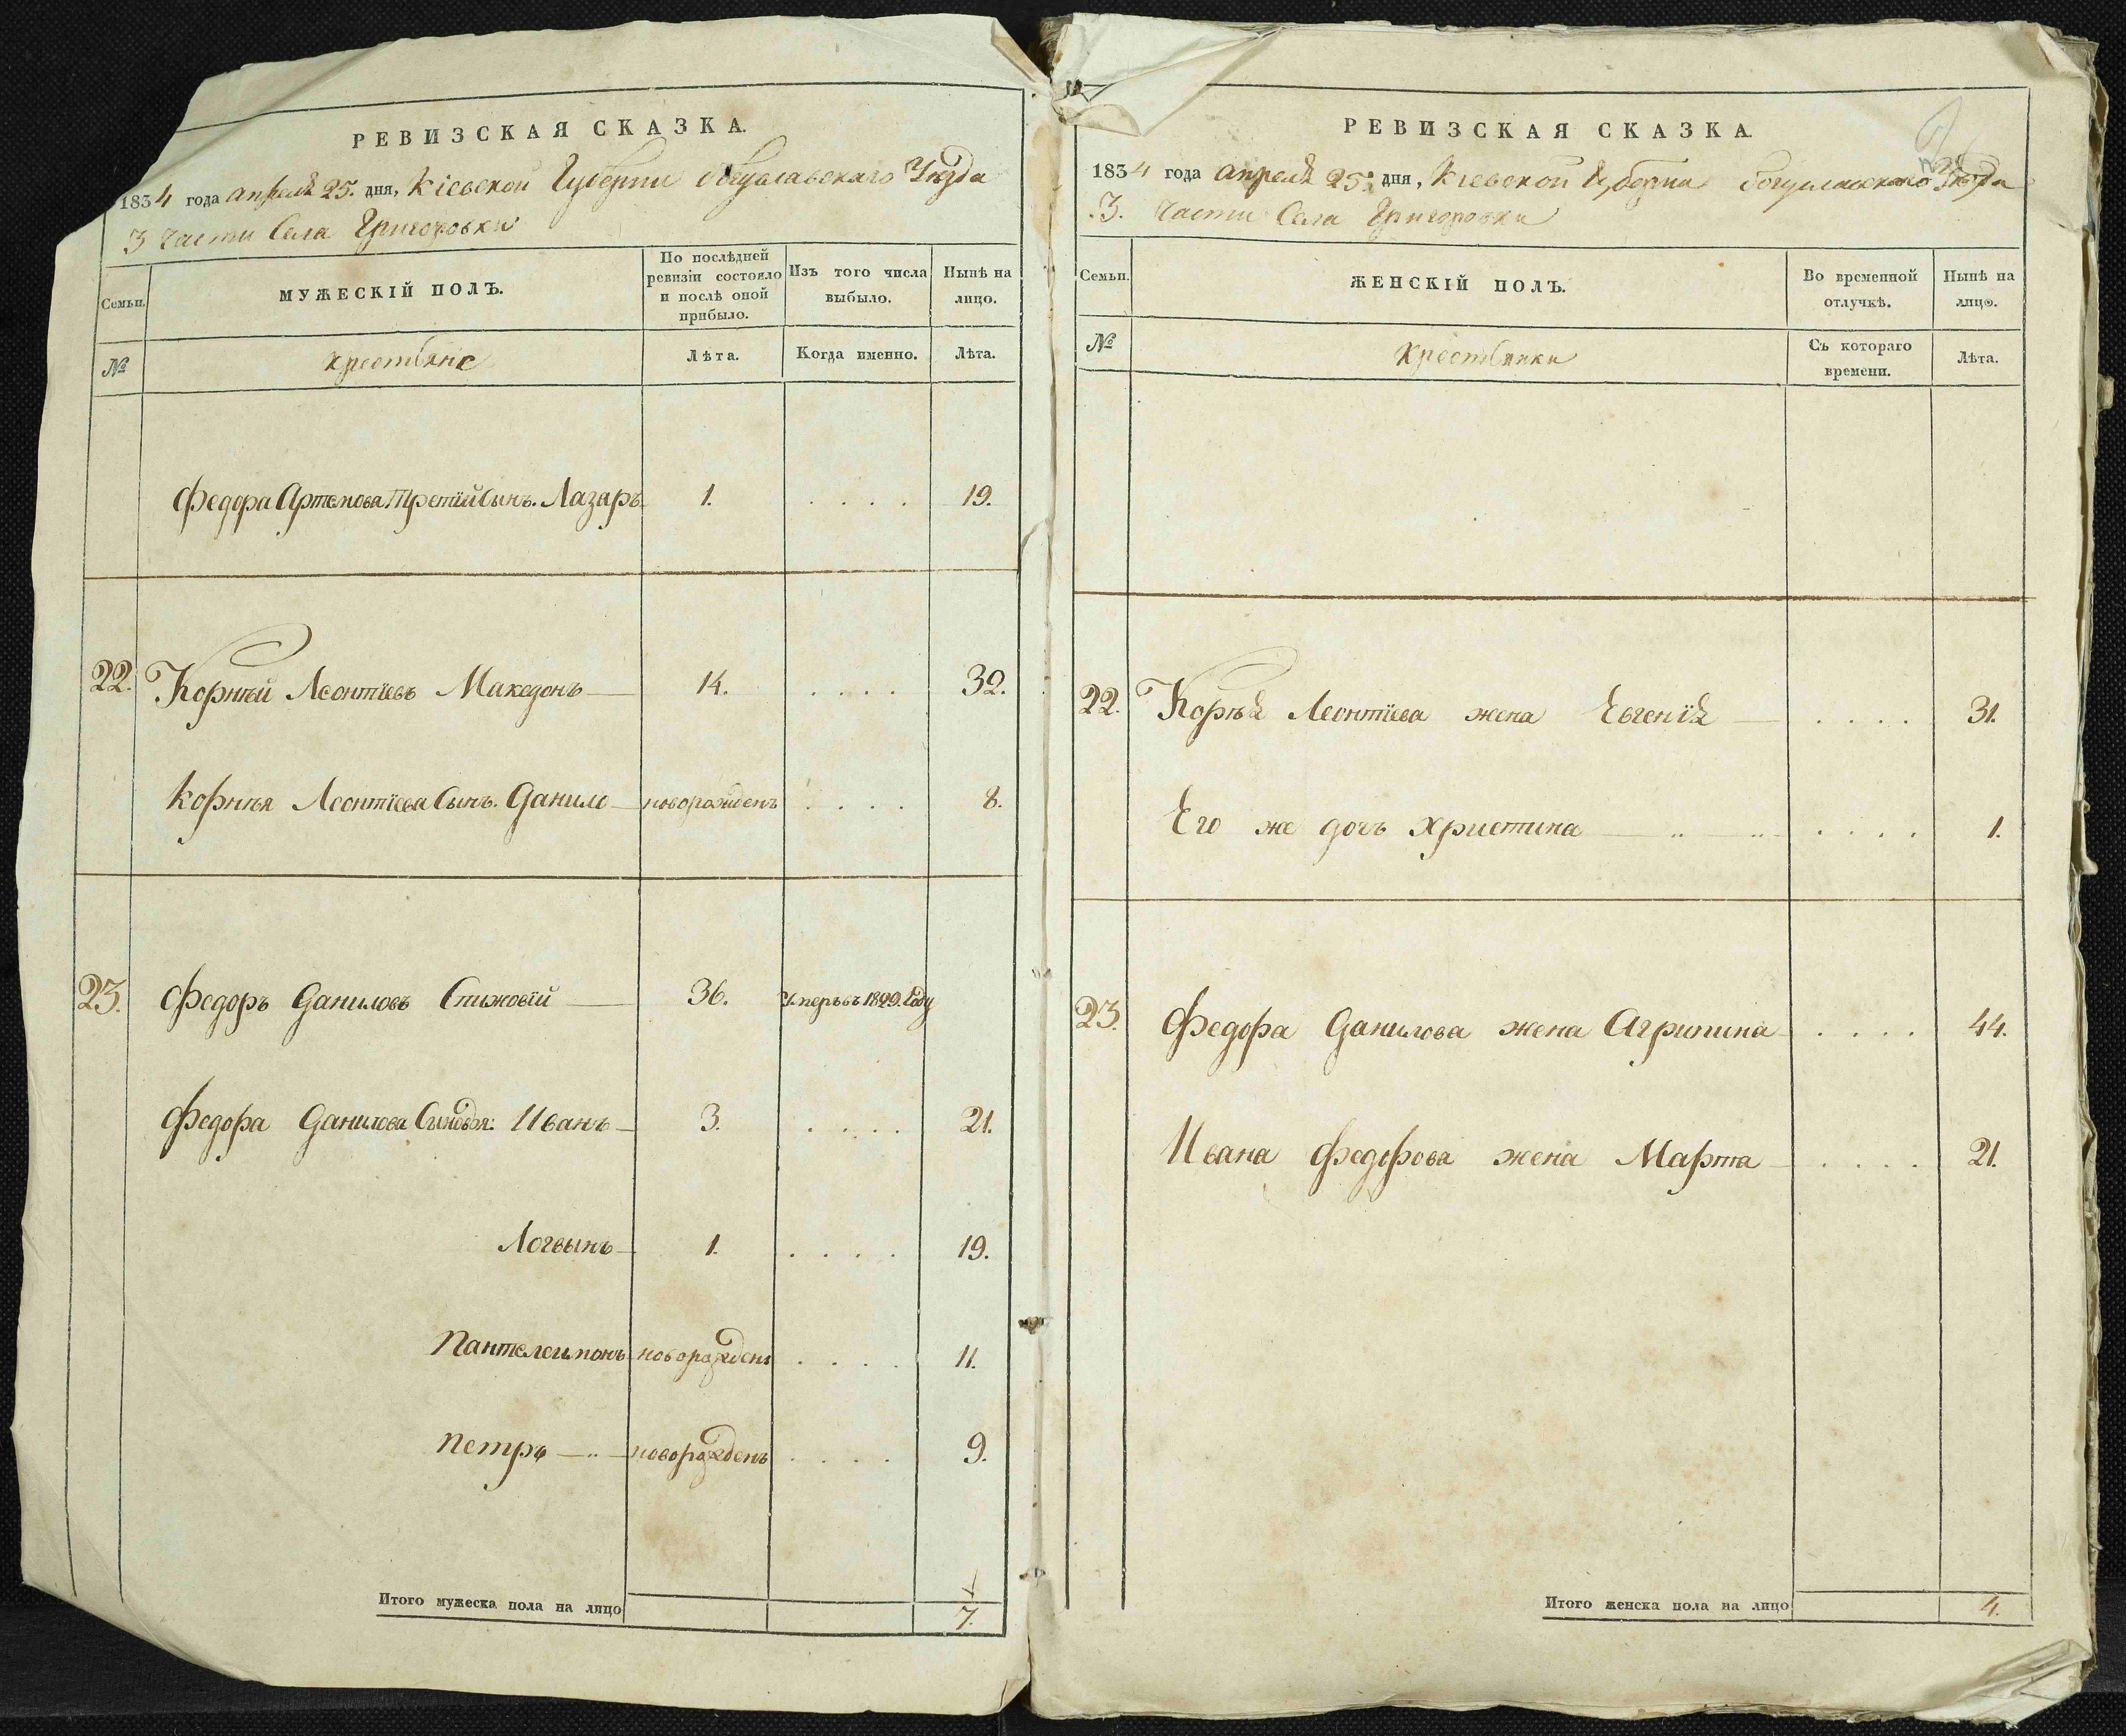 РЕВИЗСКАЯ СКАЗКА.
1834 года апреля 25. дня, Кіевской Губерни Богуславскаго Уезда
3 части Села Григоровки
Семьи.
МУЖЕСКІЙ ПОЛЪ.
По послѣдней ревизіи состояло и послѣ оной прибыло.
Изъ того числа выбыло.
Нынѣ на лицо.
№
крестьяне
Лѣта.
Когда именно.
Лѣта.
Федора Артемова Третїй Сынъ. Лазаръ 1. . . . . 19.
22. Корнѣй Леонтїевъ Македонъ 14. . . . . 32.
Корнѣя Леонтїева Сынъ. Данило новорожденъ . . . . 8.
23. Федоръ Даниловъ Стижовїй 36. Умеръ въ 1829. Году
Федора Данилова Сыновья: Иванъ 3. . . . . 21.
Логвынъ 1. . . . . 19.
Пантелеимонъ новорожденъ . . . . 11.
Петръ новорожденъ . . . . 9.
Итого мужеска пола на лицо 7.
РЕВИЗСКАЯ СКАЗКА.
1834 года апреля 25. дня, Кіевской Губерни Богуславскаго Уезда
.3. части Села Григоровки
Семьи.
ЖЕНСКІЙ ПОЛЪ.
Во временной отлучкѣ.
Нынѣ на лицо.
№
Крестьянки
Съ котораго времени.
Лѣта.
22. Корнѣя Леонтїева жена Евгенїя . . . . 31.
Его же дочъ Христина . . . . 1.
23. Федора Данилова жена Агрипина . . . . 44.
Ивана Федорова жена Марта . . . . 21.
Итого женска пола на лицо 4.